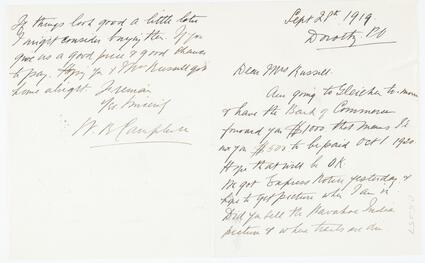 Sept 28th 1919.
Dorothy P.O
Dear Mrs Russell.
Am going to Gleichen to-morrow
& have the Bank of Commerce
forward you $1000 that means I
owe you $500 to be paid Oct 1 1920
Hope that will be O.K.
We got Express Notice yesterday &
hope to get picture when I am in
Did you sell the Navahoe Indian
picture & what tracts are
If things look good a little later
I might consider buying this. If you
give me a good price & good chance
to pay. Hope you & Mr Russell got
home alright I remain
Yrs Sincerely
W R Campbell